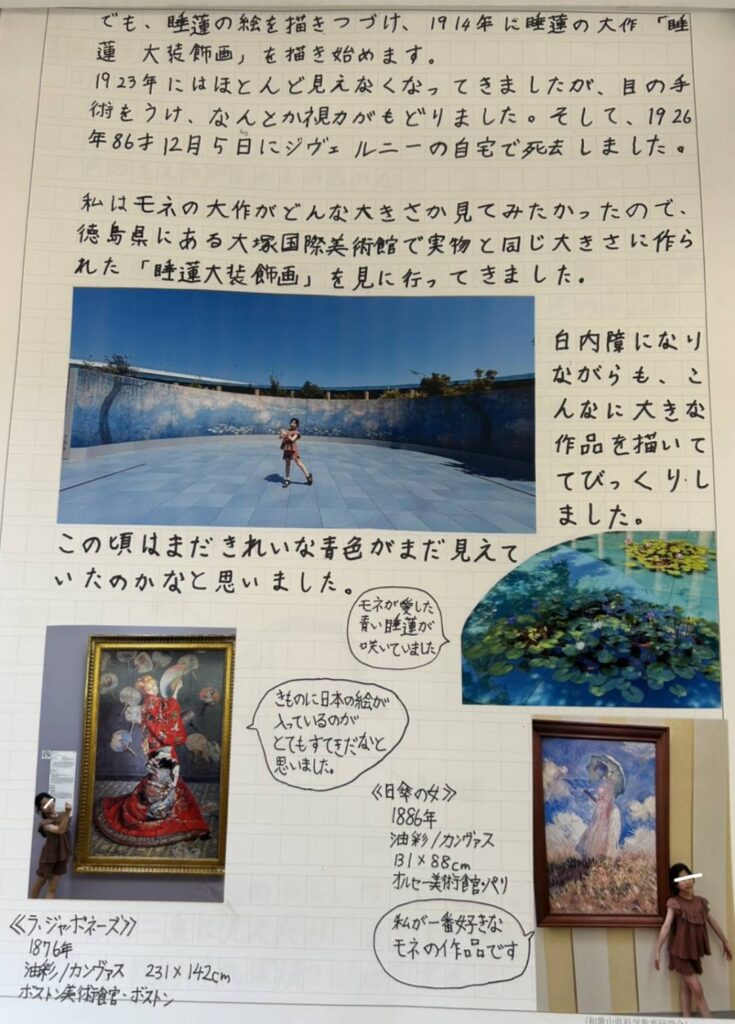 でも、睡蓮の絵を描きつづけ、1914年に睡蓮の大作「睡
蓮　大装飾画」を描き始めます。
1923年にはほとんど見えなくなってきましたが、目の手
術をうけ、なんとか視力がもどりました。そして、1926
年86才12月5日にジヴェルニーの自宅で死去しました。
私はモネの大作がどんな大きさか見てみたかったので、
徳島県にある大塚国際美術館で実物と同じ大きさに作ら
れた「睡蓮大装飾画」を見に行ってきました。
白内障になり
ながらも、こ
んなに大きな
作品を描いて
てびっくりし
ました。
この頃はまだきれいな青色がまだ見えて
いたのかなと思いました。
モネが愛した
青い睡蓮が
咲いていました
きものに日本の絵が
入っているのが
とてもすてきだなと
思いました。
《日傘の女》
1886年
油彩/カンヴァス
131×88cm
オルセー美術館・パリ
私が一番好きな
モネの作品です
《ラ・ジャポネーズ》
1876年
油彩/カンヴァス　231×142cm
ボストン美術館・ボストン